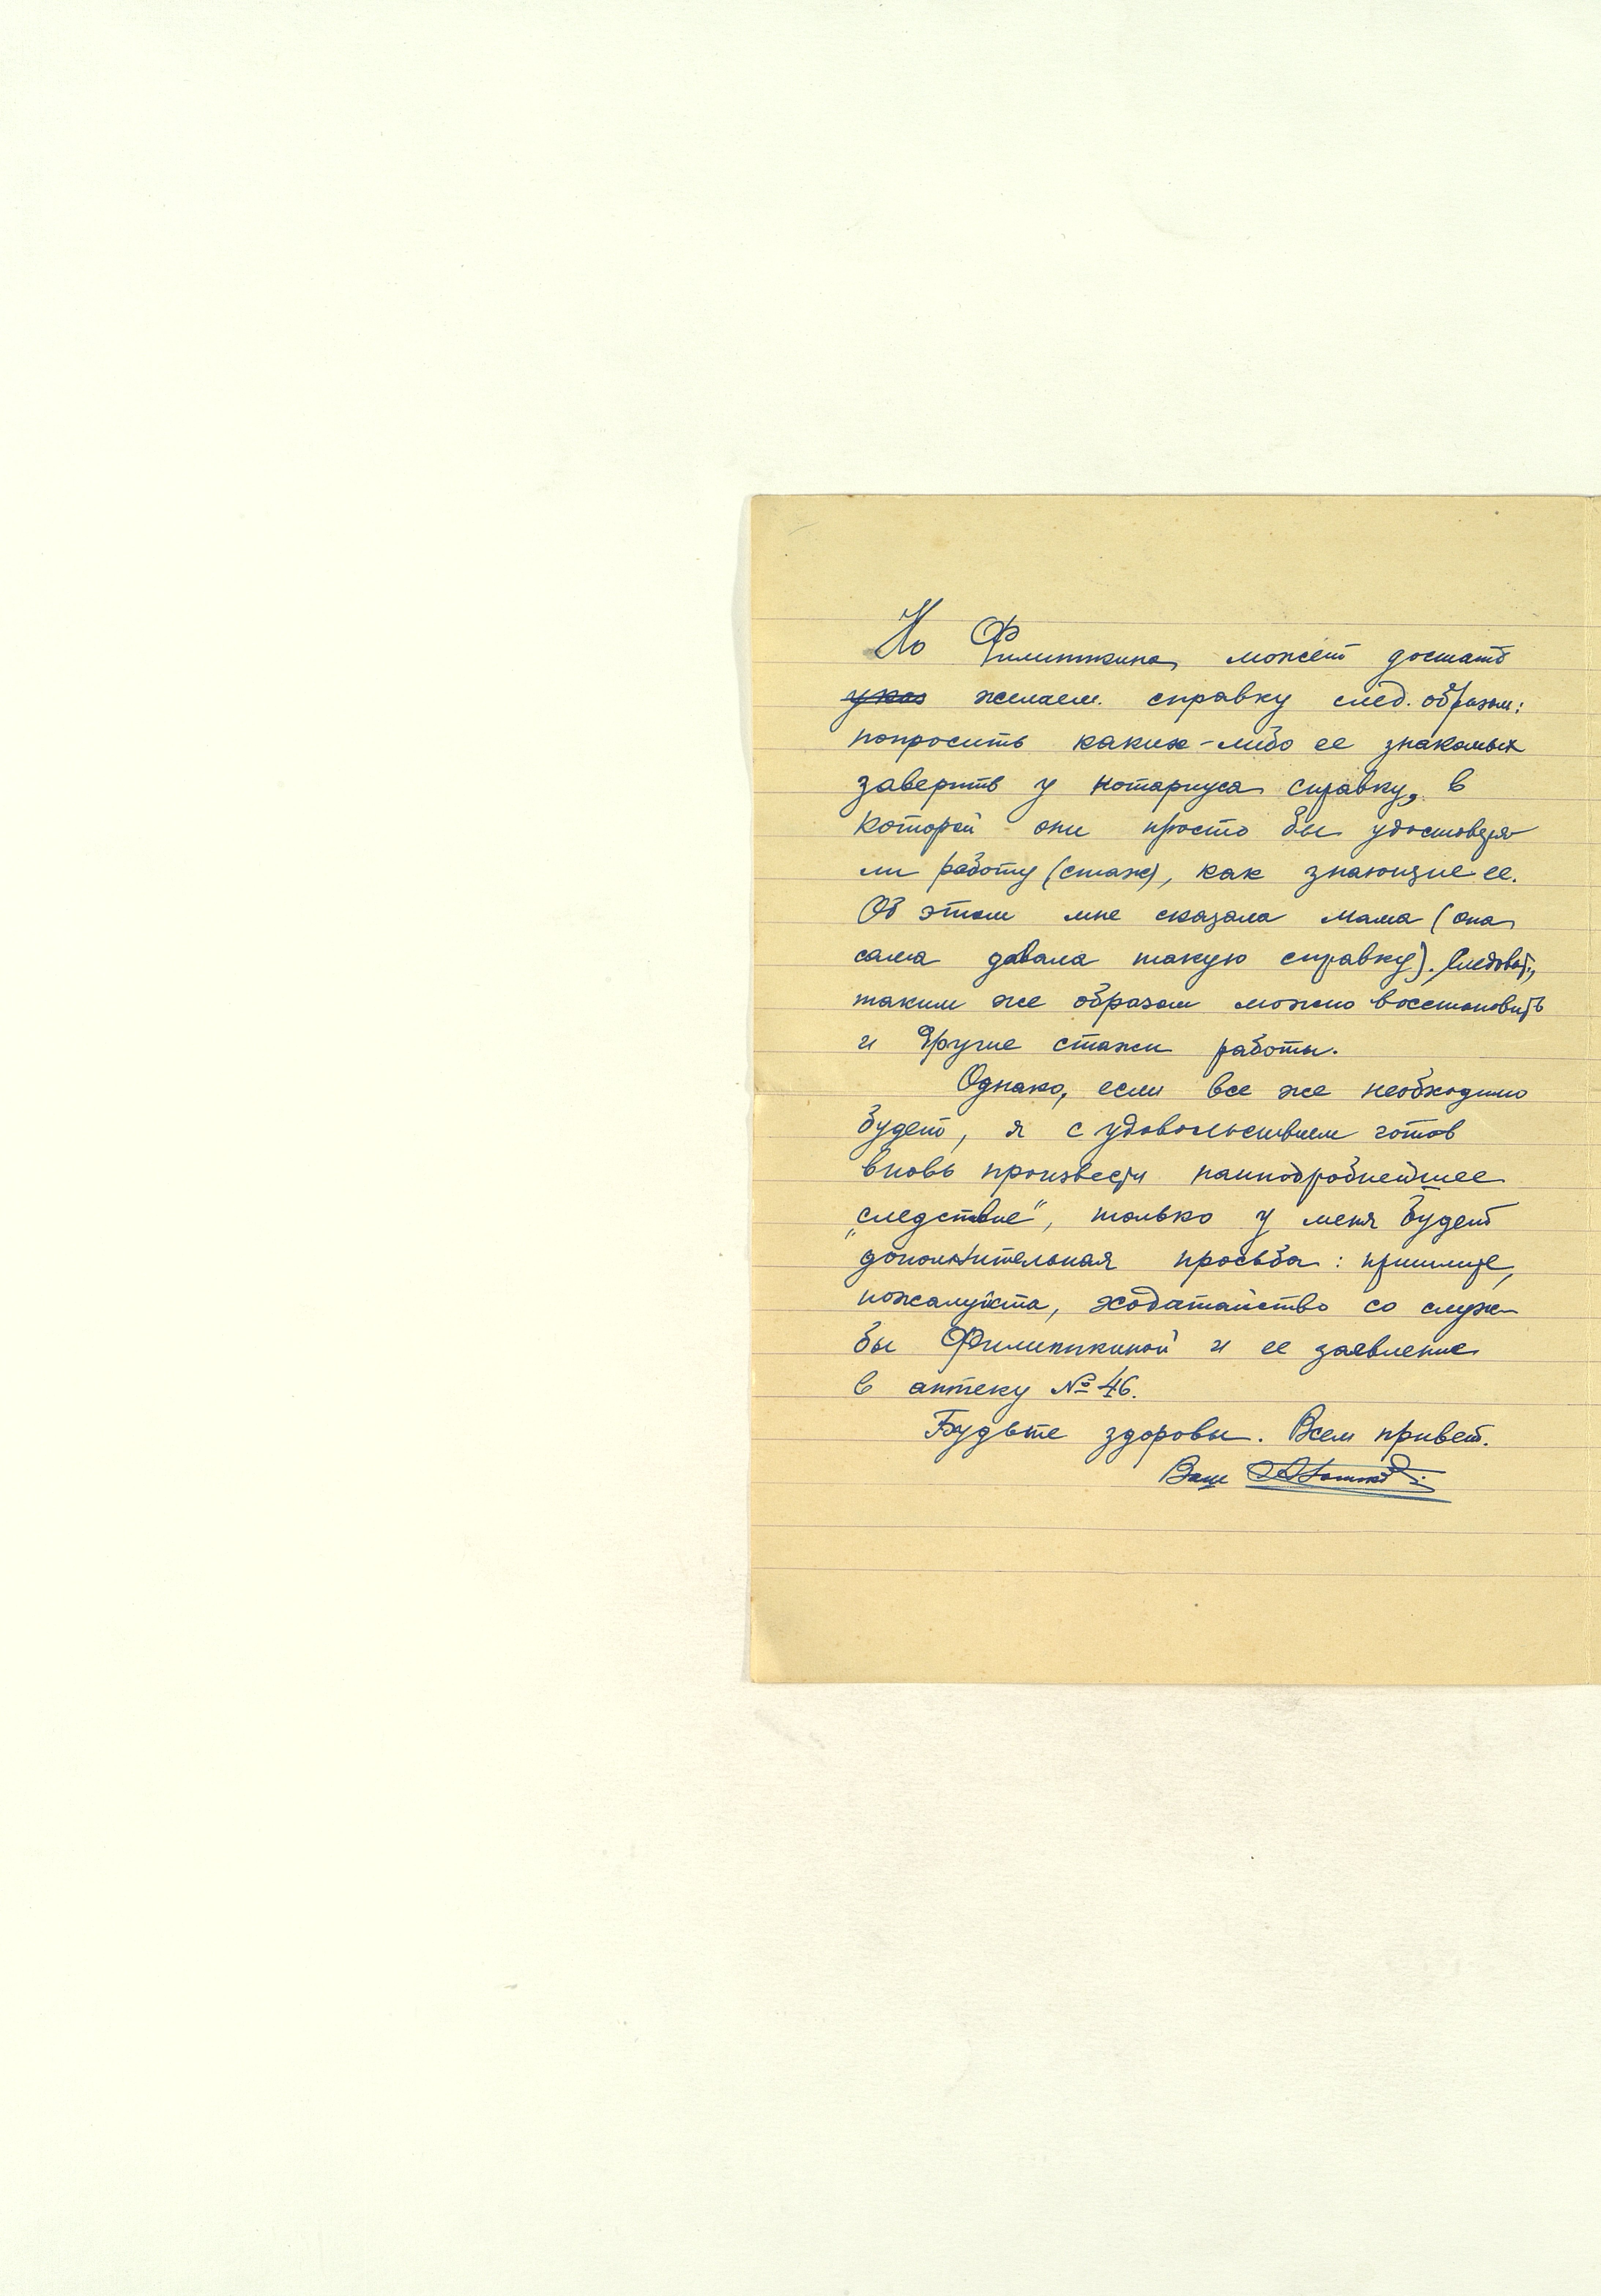 Но Филиппкина может достать
желаем. справку след. образом:
попросить каких-либо ее знакомых
заверить у нотариуса справку, в
которой они просто бы удостоверя-
ли работу (стаж), как знающие ее.
Об этом мне сказала мама (она
сама давала такую справку). Следоват.,
таким же образом можно восстановить
и другие стажи работы.
Однако, если все же необходимо
будет, я с удовольствием готов
вновь произвести наиподробнейшее
„следствие“, только у меня будет
дополнительная просьба: пришлите,
пожалуйста, ходатайство со служ-
бы Филиппкиной и ее заявление
в аптеку № 46.
Будьте здоровы. Всем привет.
Ваш